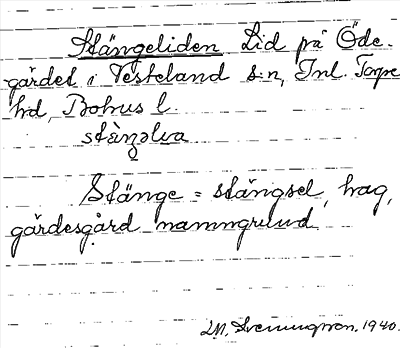 Stängeliden Lid på Öde-
gärdet i Vesteland s:n, Inl. Torpe
hd, Bohus l.
Stänge = stängsel, hag,
gärdesgård namngrund
1940.